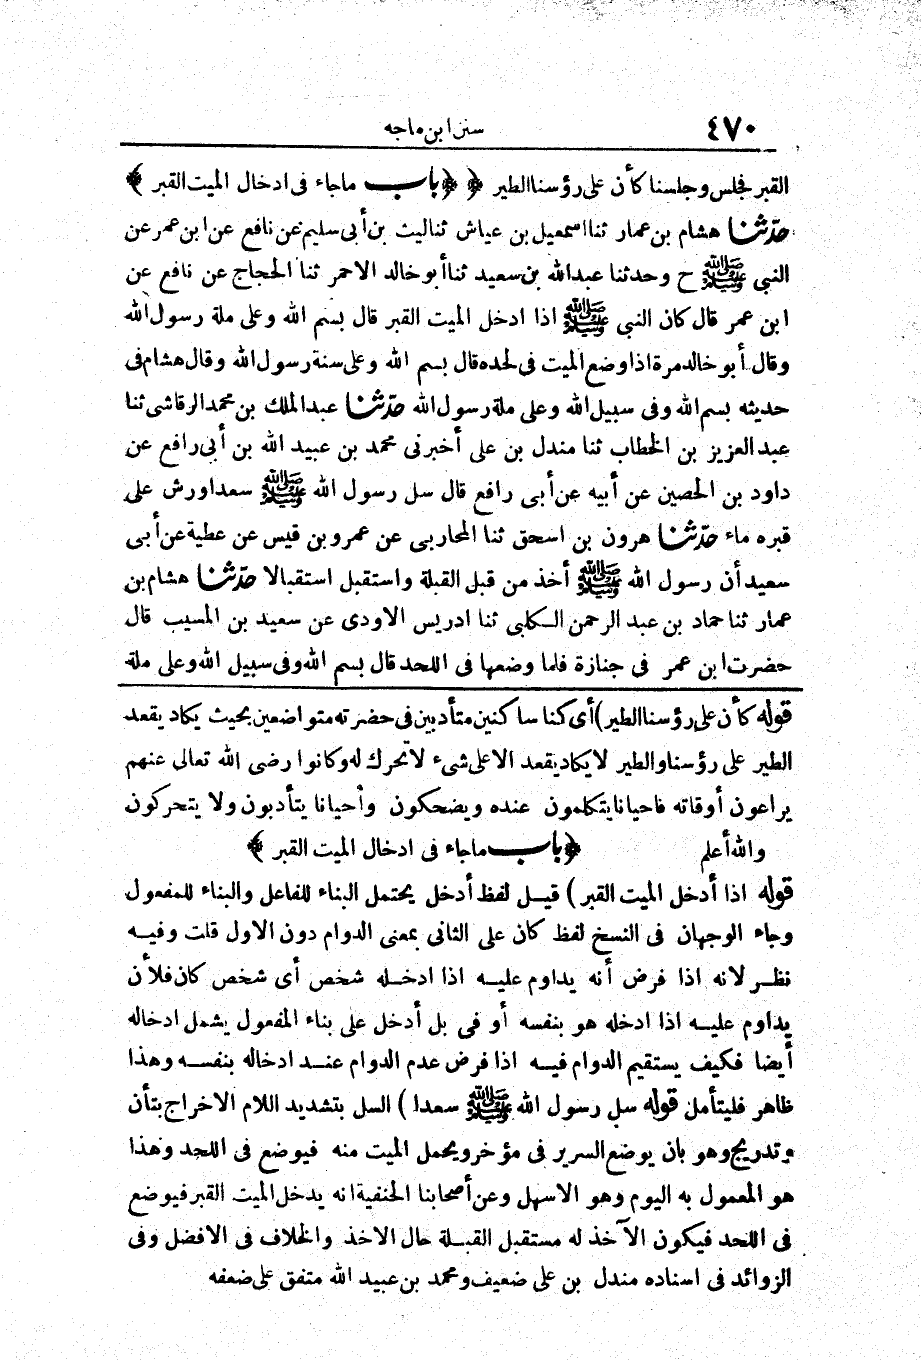 ٤٧٠
سنن ابن ماجه
القبر فجلس وجلسنا كأن على رؤسنا الطير ﴿ ﴿ باب ماجاء فى ادخال الميت القبر ﴾
حدّثنا هشام بن عمار ثنا اسمعيل بن عياش ثنا ليث بن أبى سليم عن نافع عن ابن عمر عن
النبي ﷺ ح وحدثنا عبدالله بن سعيد ثنا أبو خالد الاحمر ثنا الحجاج عن نافع عن
ابن عمر قال كان النبي ﷺ اذا ادخل الميت القبر قال بسم الله وعلى ملة رسول الله
وقال أبو خالد مرة اذا وضع الميت فى لحده قال بسم الله وعلى سنة رسول الله وقال هشام فى
حديثه بسم الله وفى سبيل الله وعلى ملة رسول الله حدّثنا عبد الملك بن محمد الرقاشى ثنا
عبد العزيز بن الخطاب ثنا مندل بن على أخبرنى محمد بن عبيد الله بن أبى رافع عن
داود بن الحصين عن أبيه عن أبى رافع قال سل رسول الله ﷺ سعدا ورش على
قبره ماء حدّثنا هرون بن اسحق ثنا المحاربى عن عمرو بن قيس عن عطية عن أبى
سعيد أن رسول الله ﷺ أخذ من قبل القبلة واستقبل استقبالا حدّثنا هشام بن
عمار ثنا حماد بن عبد الرحمن الكلبى ثنا ادريس الاودى عن سعيد بن المسيب قال
حضرت ابن عمر فى جنازة فلما وضعها فى اللحد قال بسم الله وفى سبيل الله وعلى ملة
قوله كأن على رؤسنا الطير) أى كنا ساكنين متأدبين فى حضرته متواضعين بحيث يكاد يقعد
الطير على رؤسنا والطير لا يكاد يقعد الا على شىء لا تحرك له وكانوا رضى الله تعالى عنهم
يراعون أوقاته فاحيانا يتكلمون عنده ويضحكون وأحيانا يتأدبون ولا يتحركون
والله أعلم ﴿ باب ماجاء فى ادخال الميت القبر ﴾
قوله اذا أدخل الميت القبر) قيل لفظ أدخل يحتمل البناء للفاعل والبناء للمفعول
وجاء الوجهان فى النسخ لفظ كان على الثانى بمعنى الدوام دون الاول قلت وفيه
نظر لانه اذا فرض أنه يداوم عليه اذا ادخله شخص أى شخص كان فلأن
يداوم عليه اذا ادخله هو بنفسه أو فى بل أدخل على بناء المفعول يشمل ادخاله
أيضا فكيف يستقيم الدوام فيه اذا فرض عدم الدوام عند ادخاله بنفسه وهذا
ظاهر فليتأمل قوله سل رسول الله ﷺ سعدا) السل بتشديد اللام الاخراج بتأن
وتدريج وهو بان يوضع السرير فى مؤخر ويحمل الميت منه فيوضع فى اللحد وهذا
هو المعمول به اليوم وهو الاسهل وعن أصحابنا الحنفية انه يدخل الميت القبر فيوضع
فى اللحد فيكون الآخذ له مستقبل القبلة حال الاخذ والخلاف فى الافضل وفى
الزوائد فى اسناده مندل بن على ضعيف ومحمد بن عبيد الله متفق على ضعفه